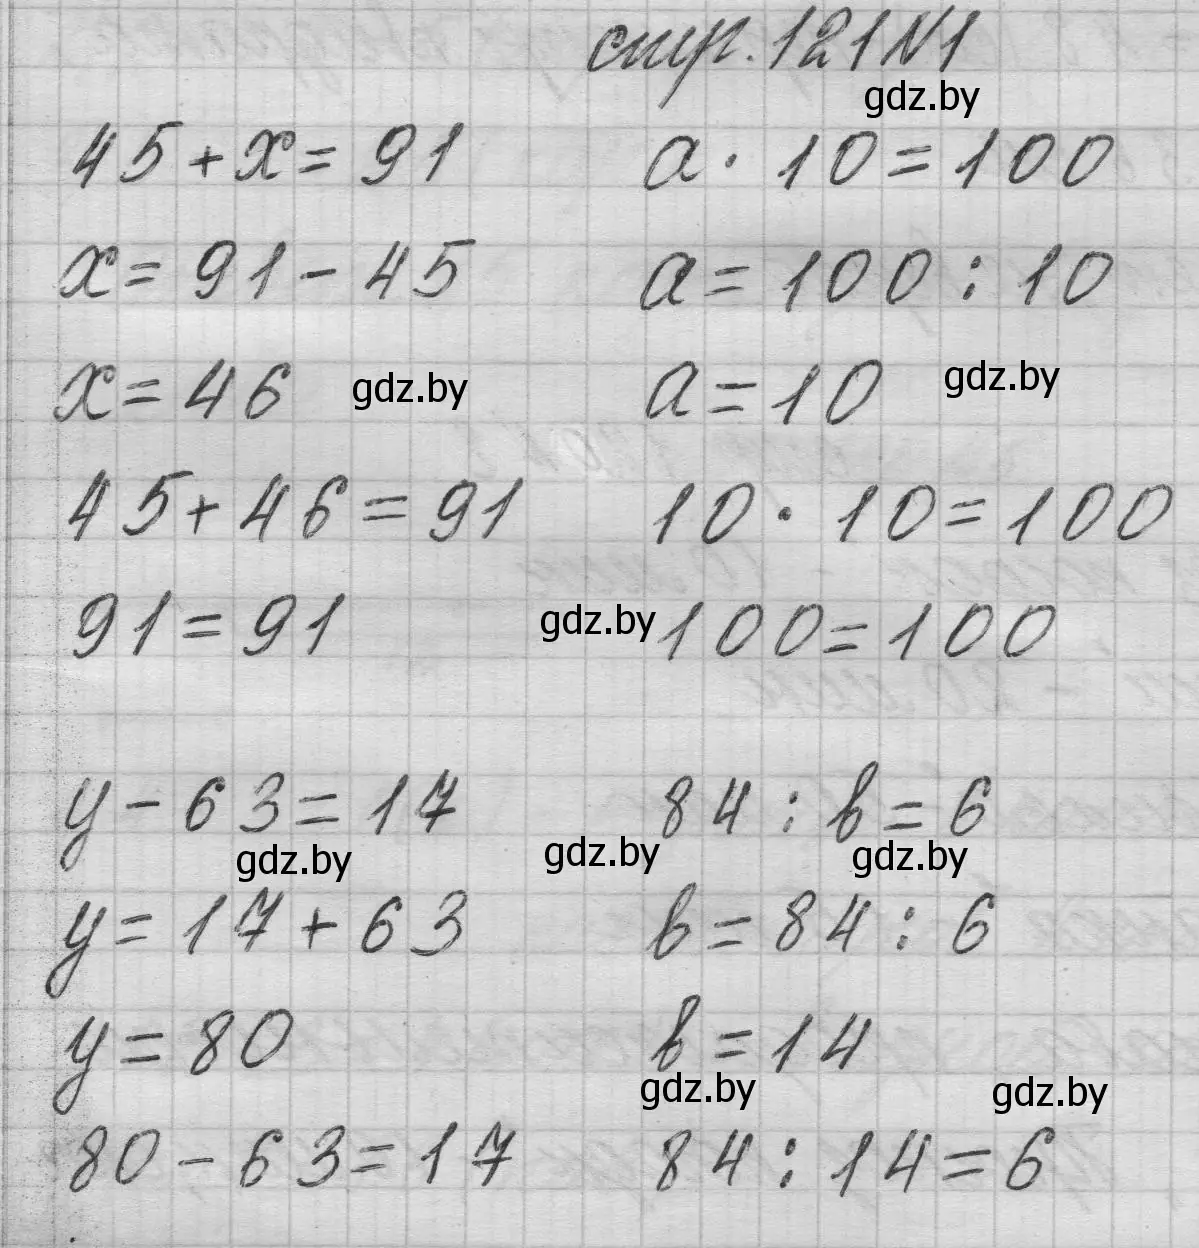 стр. 121 N1
gdz.by
45 + x = 91
x = 91 - 45
x = 46
gdz.by
45 + 46 = 91
91 = 91
a · 10 = 100
a = 100 : 10
a = 10
gdz.by
10 · 10 = 100
gdz.by
100 = 100
y - 63 = 17
gdz.by
y = 17 + 63
y = 80
80 - 63 = 17
gdz.by
84 : b = 6
gdz.by
b = 84 : 6
b = 14
gdz.by
gdz.by
84 : 14 = 6